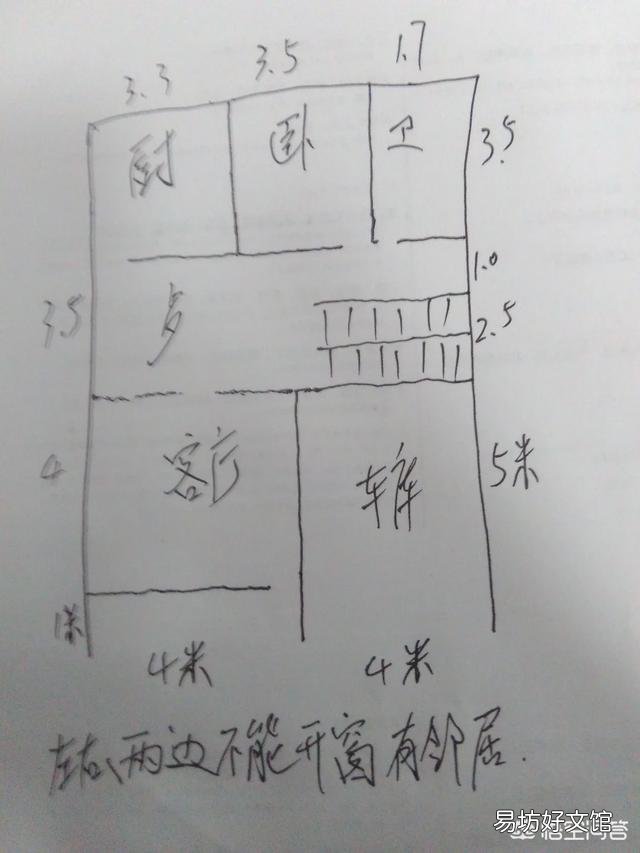 3.3 3.5 1.7
厨 卧 卫 3.5
1.0
3.5 2.5
4 客厅 车库 5米
1米
4米 4米
左右、两边不能开窗有邻居.
易坊好文馆
悟空问答